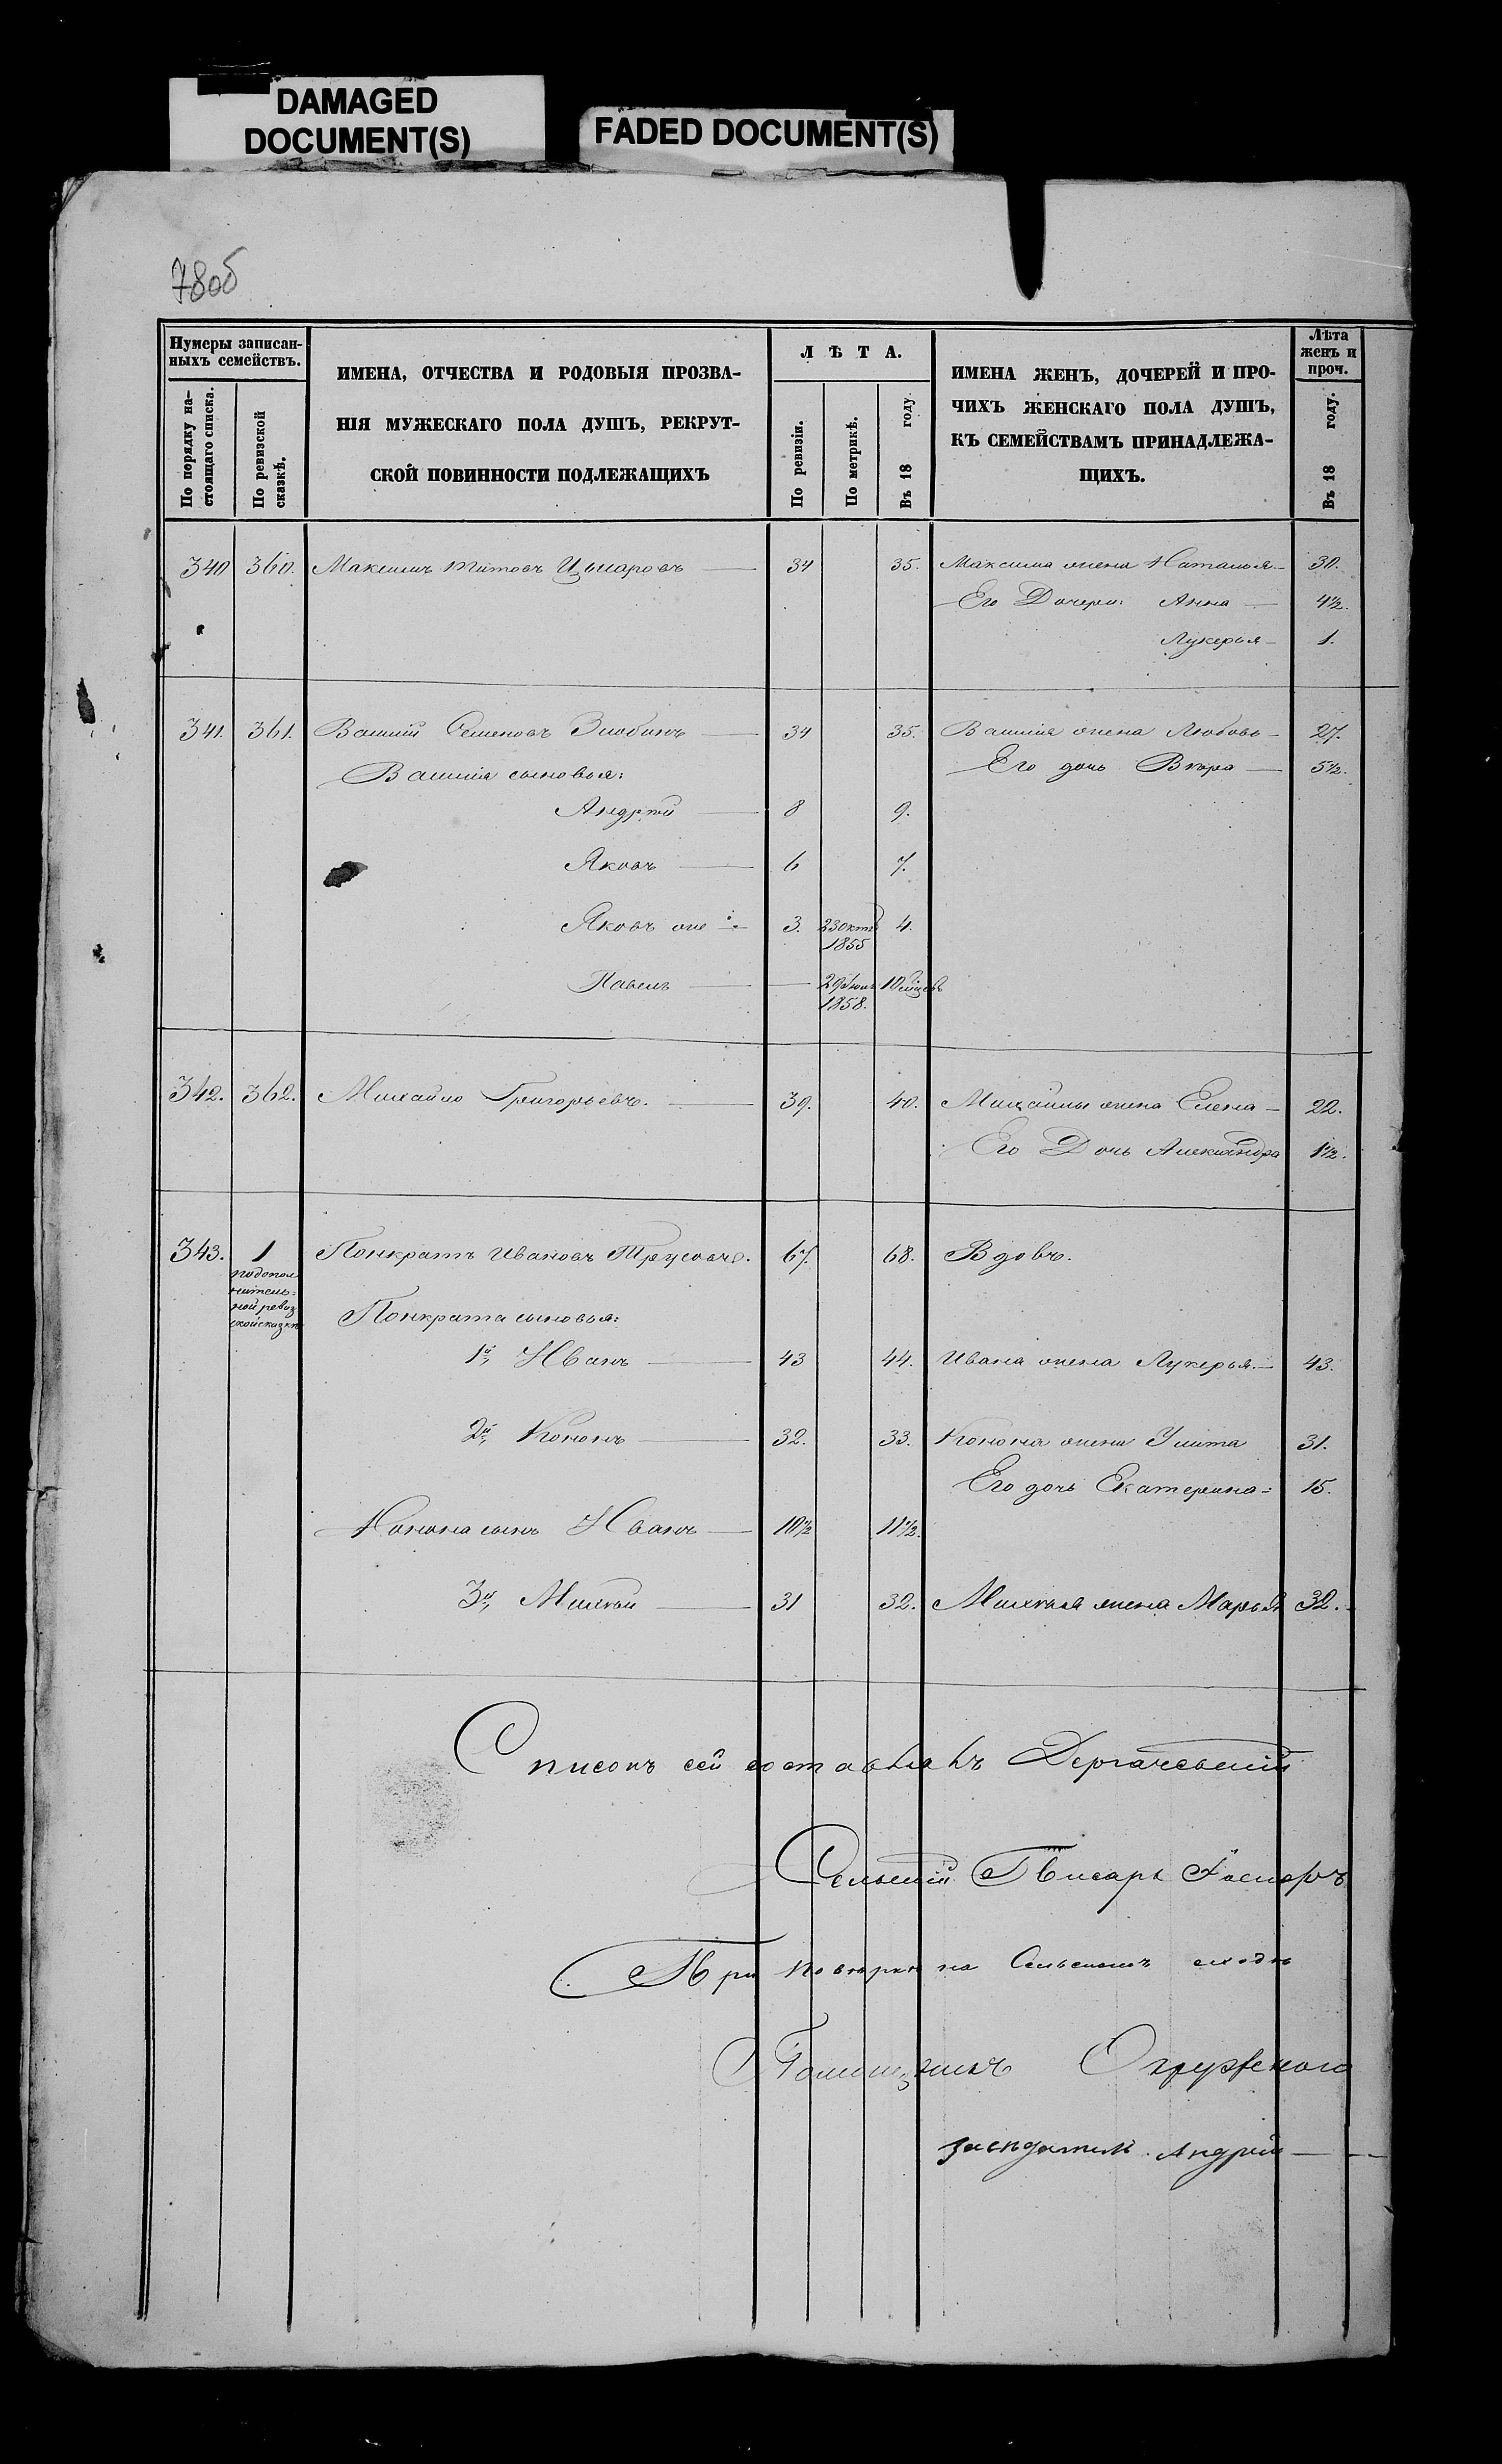 DAMAGED
DOCUMENT(S)
FADED DOCUMENT(S)
78об
Нумеры записан-
ныхъ семействъ.
По порядку на-
стоящаго списка.
По ревизской
сказкѣ.
ИМЕНА, ОТЧЕСТВА И РОДОВЫЯ ПРОЗВА-
НІЯ МУЖЕСКАГО ПОЛА ДУШЪ, РЕКРУТ-
СКОЙ ПОВИННОСТИ ПОДЛЕЖАЩИХЪ
Л Ѣ Т А.
По ревизіи.
По метрикѣ.
Въ 18 году.
ИМЕНА ЖЕНЪ, ДОЧЕРЕЙ И ПРО-
ЧИХЪ ЖЕНСКАГО ПОЛА ДУШЪ,
КЪ СЕМЕЙСТВАМЪ ПРИНАДЛЕЖА-
ЩИХЪ.
Лѣта
женъ и
проч.
Въ 18 году.
340 360. Максимъ Титовъ 34 35. Максима жена Наталья 30.
Его Дочери: Анна 4½.
Лукерья 1.
341. 361. Василій Семеновъ Злобинъ 34 35. Василія жена Любовь 27.
Василія сыновья: Его дочь Вѣра 5½.
Андрей 8 9.
Яковъ 6 7.
Яковъ же 3. 23 окт. 4.
1855
Павелъ 10 мѣсяц.
1858.
342. 362. Михайло Григорьевъ. 39. 40. Михайлы жена Елена 22.
Его Дочь Александра 1½.
343. 1 Понкратъ Ивановъ Трусовъ. 67. 68. Вдовъ.
подопол
нитель:
ной ревиз
ской сказкѣ
Понкрата сыновья:
1й, Иванъ 43 44. Ивана жена Лукерья. 43.
2й, Кононъ 32. 33. Конона жена Улита 31.
Его дочь Екатерина 15.
Конона сынъ Иванъ 10½ 11½.
3й, Михѣй 31 32. Михѣя жена Марья 32.
Списокъ сей составлялъ Дергачевскій
Сельскій Писарь
При повѣрке на Сельскомъ сходѣ
Помощникъ Окружнаго